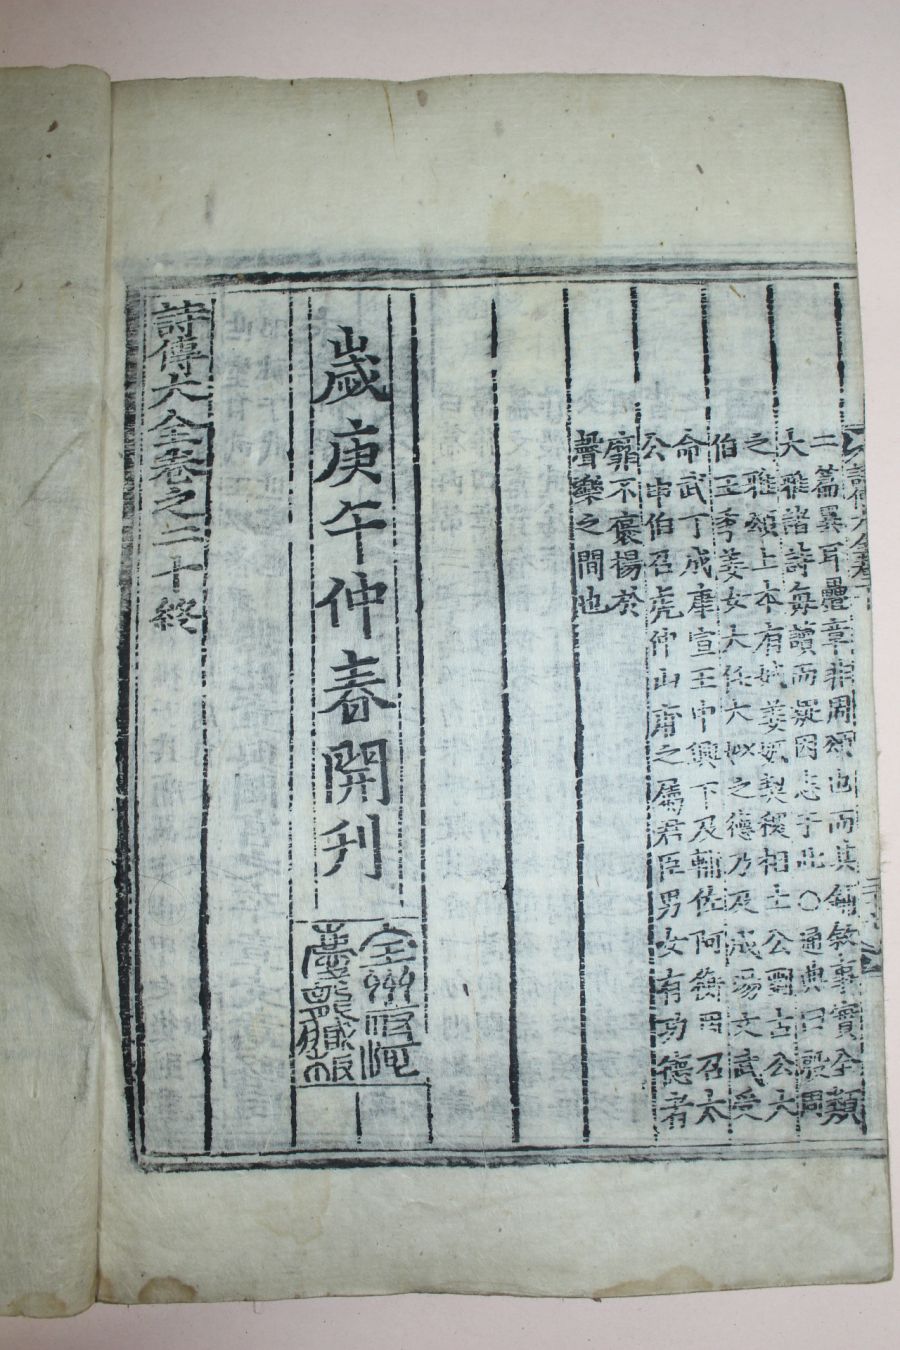 二篇異耳疊章非周頌也而其鋪敘事實全類
大雅諸詩每讀而疑因志于此○通典曰殷周
之雅頌上本有娀姜嫄契稷相土公劉古公大
伯王季姜女大任大姒之德乃及成湯文武受
命武丁成康宣王中興下及輔佐阿衡周召太
公申伯召虎仲山甫之屬君臣男女有功德者
靡不褒揚於
聲樂之間也
歲庚午仲春開刊
全州府河
慶龍藏板
詩傳大全卷之二十終